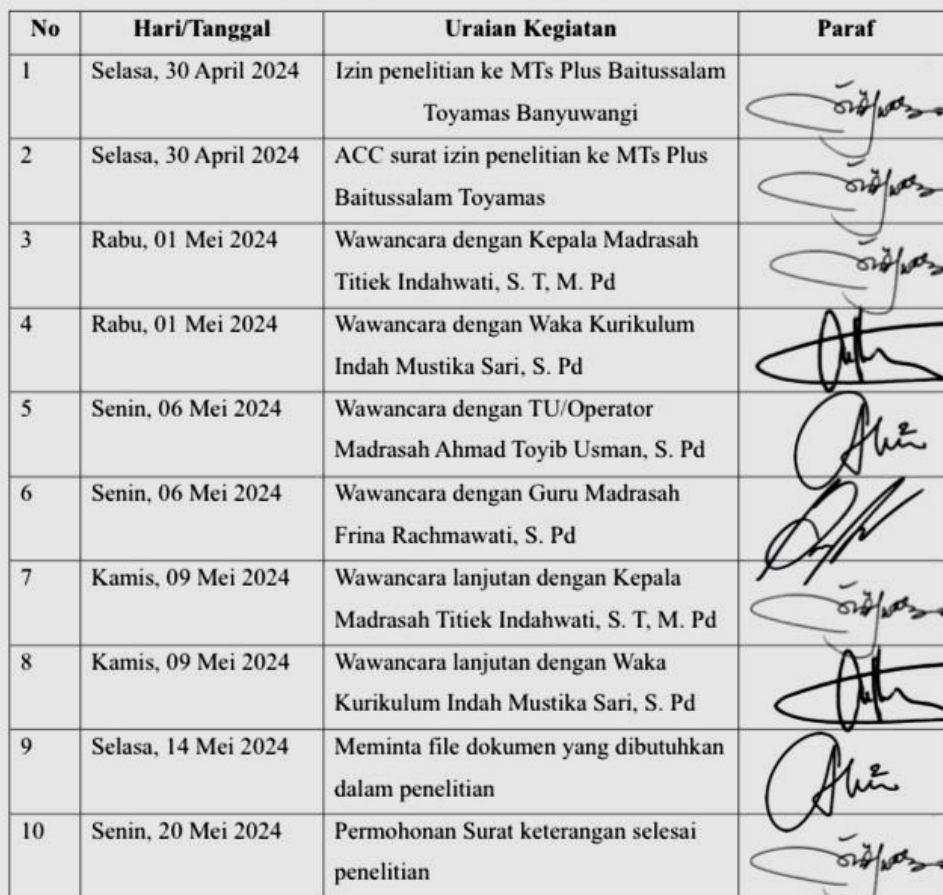 No Hari/Tanggal Uraian Kegiatan Paraf
1 Selasa, 30 April 2024 Izin penelitian ke MTs Plus Baitussalam
Toyamas Banyuwangi
2 Selasa, 30 April 2024 ACC surat izin penelitian ke MTs Plus
Baitussalam Toyamas
3 Rabu, 01 Mei 2024 Wawancara dengan Kepala Madrasah
Titiek Indahwati, S. T, M. Pd
4 Rabu, 01 Mei 2024 Wawancara dengan Waka Kurikulum
Indah Mustika Sari, S. Pd
5 Senin, 06 Mei 2024 Wawancara dengan TU/Operator
Madrasah Ahmad Toyib Usman, S. Pd
6 Senin, 06 Mei 2024 Wawancara dengan Guru Madrasah
Frina Rachmawati, S. Pd
7 Kamis, 09 Mei 2024 Wawancara lanjutan dengan Kepala
Madrasah Titiek Indahwati, S. T, M. Pd
8 Kamis, 09 Mei 2024 Wawancara lanjutan dengan Waka
Kurikulum Indah Mustika Sari, S. Pd
9 Selasa, 14 Mei 2024 Meminta file dokumen yang dibutuhkan
dalam penelitian
10 Senin, 20 Mei 2024 Permohonan Surat keterangan selesai
penelitian